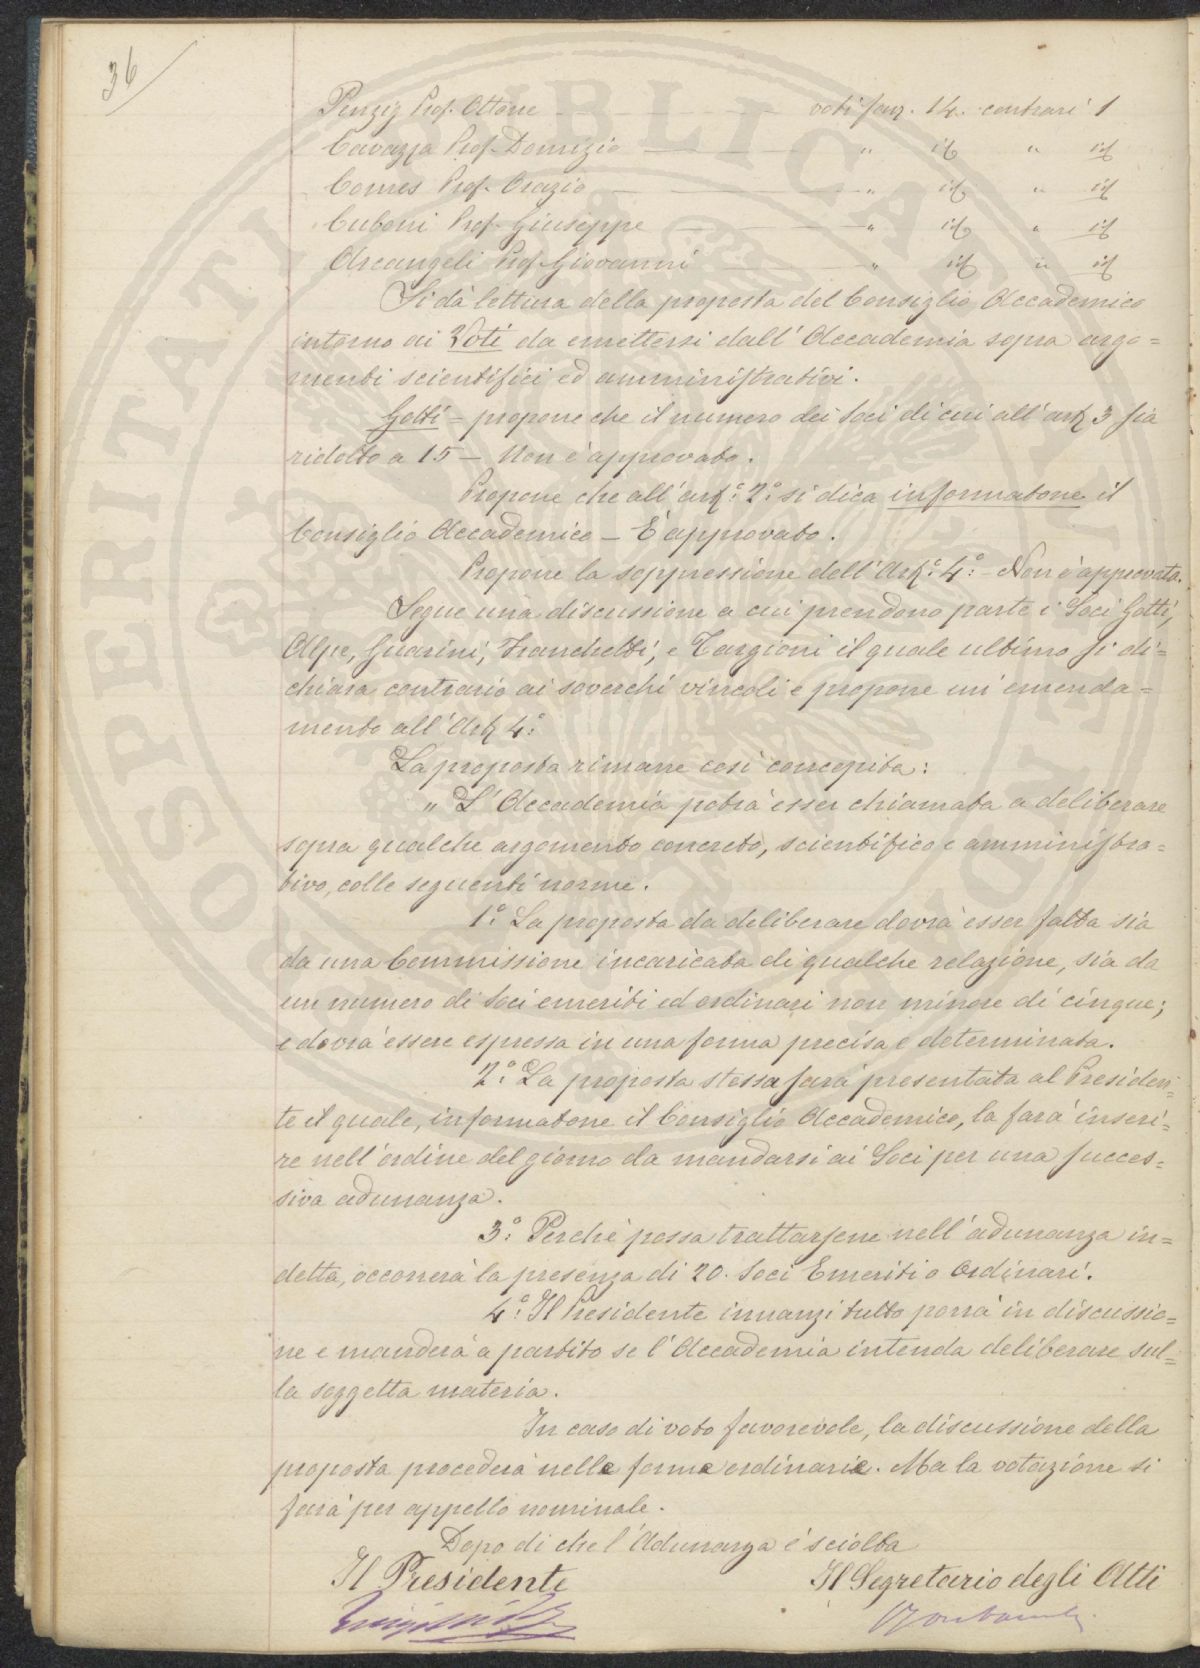 36
Penzig Prof. Ottone — voti fav. 14. contrari 1
Cavazza Prof. Domizio — " id " id
Comes Prof. Orazio — " id " id
Cuboni Prof. Giuseppe — " id " id
Arcangeli Prof. Giovanni — " id " id
Si dà lettura della proposta del Consiglio Accademico
intorno ai Voti da emettersi dall'Accademia sopra argo=
menti scientifici ed amministrativi.
Gotti = propone che il numero dei Soci di cui all'art 3 sia
ridotto a 15 — Non è approvato.
Propone che all'art.° 2.° si dica informatone il
Consiglio Accademico — È approvato.
Propone la soppressione dell'Art.° 4.° — Non è approvata.
Segue una discussione a cui prendono parte i Soci Gotti,
Alpe, Guarini, Franchetti, e Targioni il quale ultimo si di=
chiara contrario ai soverchi vincoli e propone un'emenda=
mento all'Art 4.°
La proposta rimane così concepita:
" L'Accademia potrà esser chiamata a deliberare
sopra qualche argomento concreto, scientifico e amministra=
tivo, colle seguenti norme.
1.° La proposta da deliberare dovrà esser fatta sia
da una Commissione incaricata di qualche relazione, sia da
un numero di Soci emeriti ed ordinari non minore di cinque;
e dovrà essere espressa in una forma precisa e determinata.
2.° La proposta stessa sarà presentata al Presiden=
te il quale, informatone il Consiglio Accademico, la farà inseri=
re nell'ordine del giorno da mandarsi ai Soci per una succes=
siva adunanza.
3.° Perchè possa trattarsene nell'adunanza in=
detta, occorrerà la presenza di 20. Soci Emeriti o Ordinari.
4.° Il Presidente innanzi tutto porrà in discussio=
ne e manderà a partito se l'Accademia intenda deliberare sul=
la soggetta materia.
In caso di voto favorevole, la discussione della
proposta procederà nelle forme ordinarie. Ma la votazione si
farà per appello nominale.
Dopo di che l'Adunanza è sciolta
Il Presidente Il Segretario degli Atti
PROSPERITATI PUBLICAE